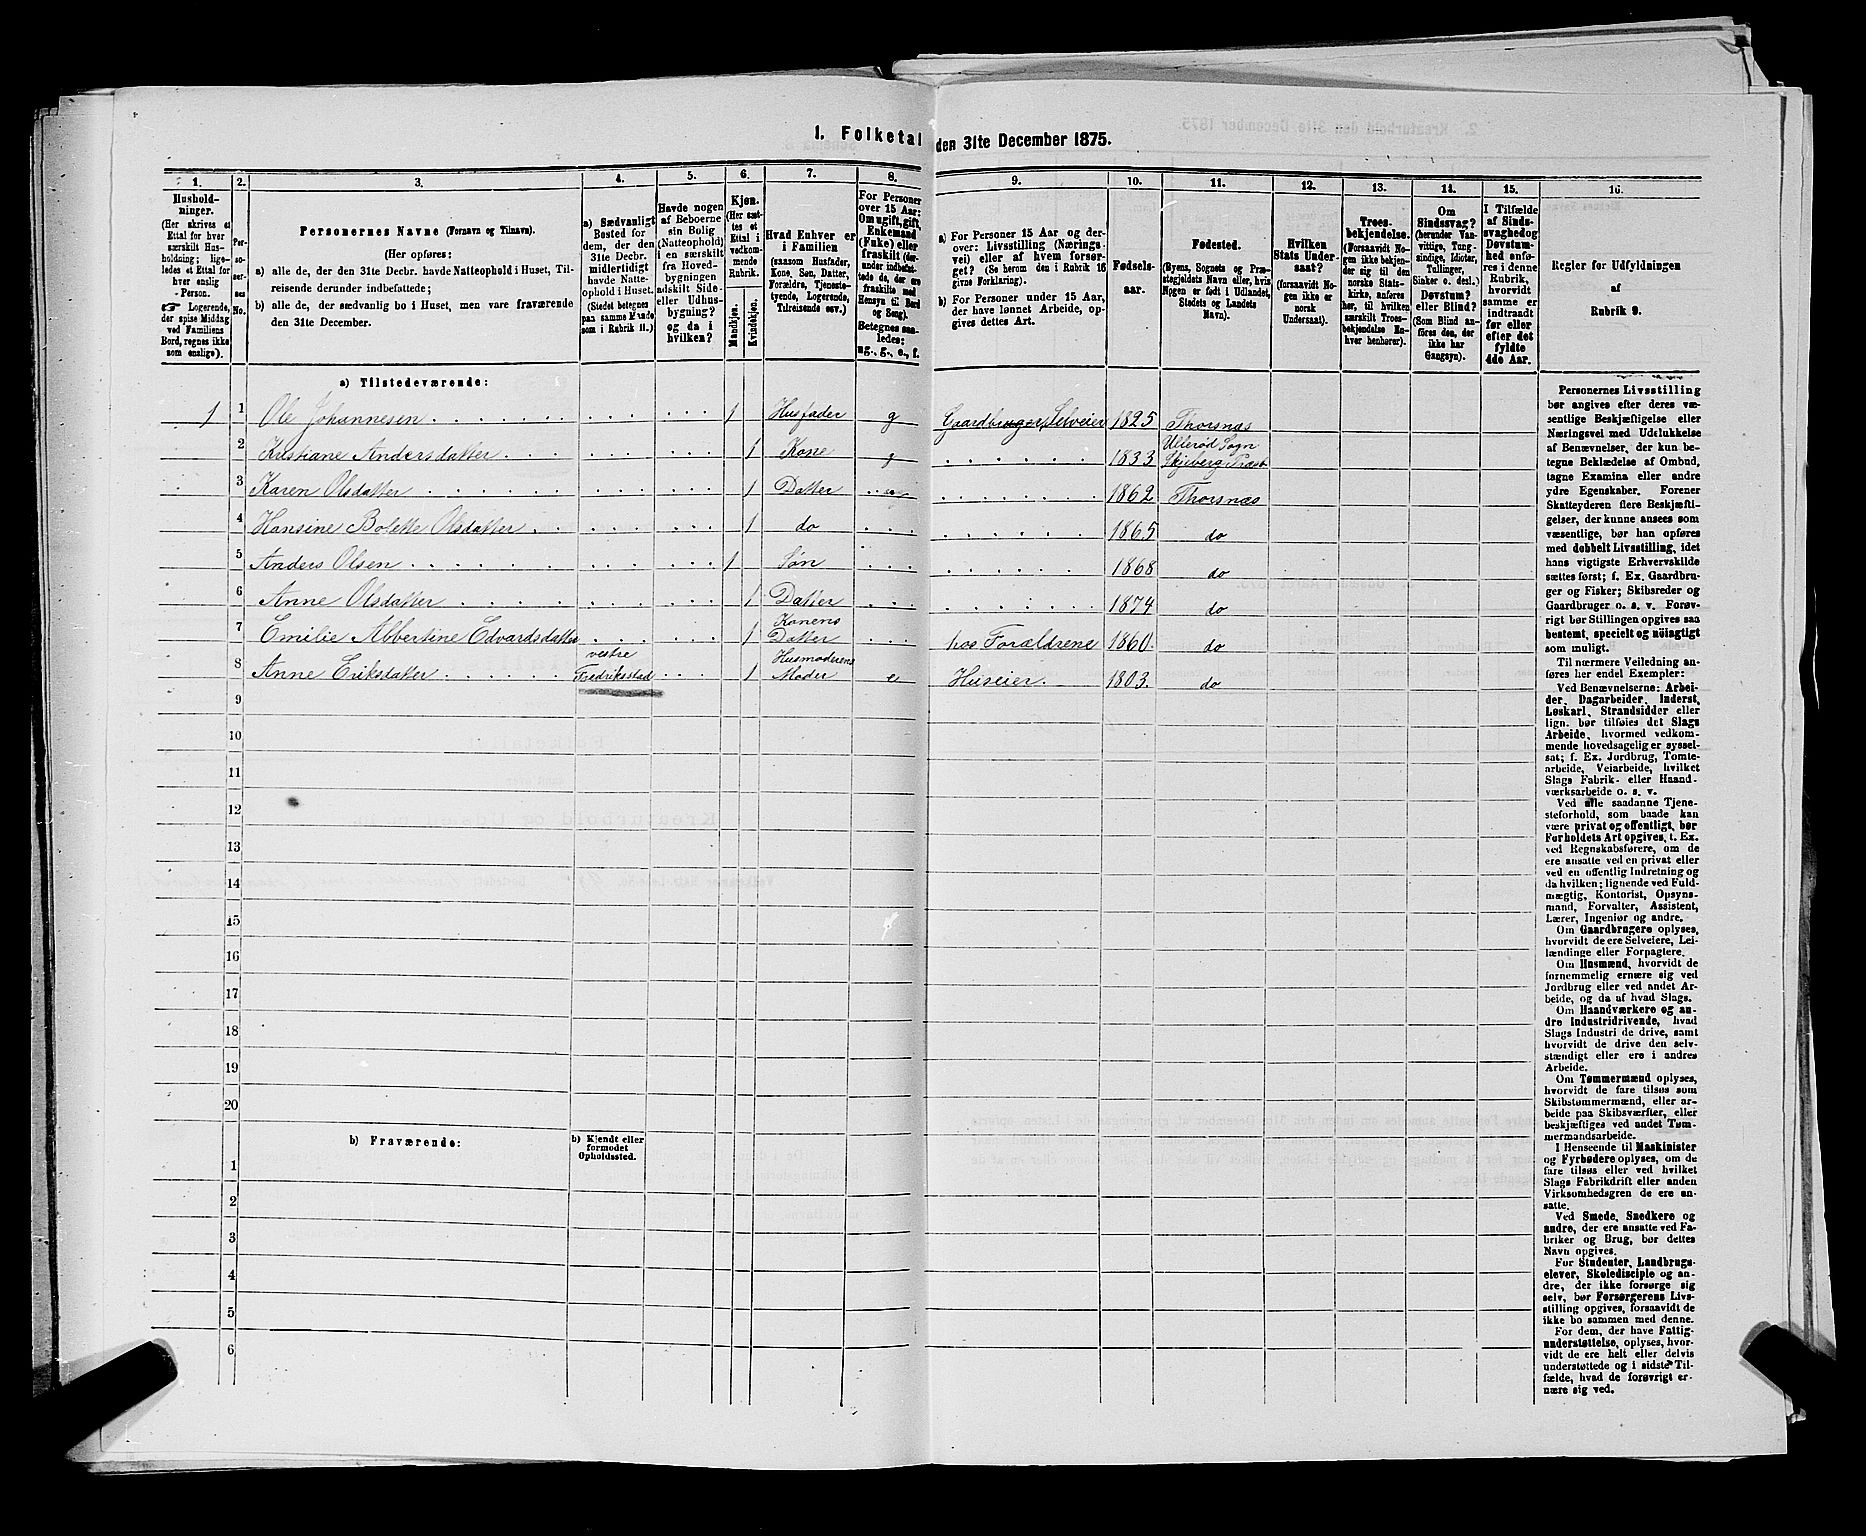 1. Folketal den 31te December 1875.
1.
2.
3.
4.
5.
6.
7.
8.
9.
10.
11.
12.
13.
14.
15.
16.
Hushold-
ninger.
(Her skrives et
Ettal for hver
særskilt Hus-
holdning; lige-
ledes et Ettal for
hver enslig
Person.
☛ Logerende,
der spise Middag
ved Familiens
Bord, regnes ikke
som enslige).
Per-
so-
ner-
nes
No.
Personernes Navne (Fornavn og Tilnavn).
(Her opføres:
a) alle de, der den 31te Decbr. havde Natteophold i Huset, Til-
reisende derunder indbefattede;
b) alle de, der sædvanlig bo i Huset, men vare fraværende
den 31te December.
a) Sædvanligt
Bosted for
dem, der den
31te Decbr.
midlertidigt
havde Natte-
ophold i Huset.
(Stedet betegnes
paa samme Maade
som i Rubrik 11.)
Havde nogen
af Beboerne
sin Bolig
(Natteophold)
i en særskilt
fra Hoved-
bygningen
adskilt Side-
eller Udhus-
bygning?
og da i
hvilken?
Kjøn.
(Her sæt-
tes et
Ettal i
vedkom-
mende
Rubrik.
Mandkjøn.
Kvindekjøn.
Hvad Enhver er
i Familien
(saasom Husfader,
Kone, Søn, Datter,
Forældre, Tjeneste-
tyende, Logerende,
Tilreisende osv.)
For Personer
over 15 Aar:
Om ugift, gift,
Enkemand
(Enke) eller
fraskilt (der-
under indbefat-
tede de, der ere
fraskilte med
Hensyn til Bord
og Seng).
Betegnes saa-
ledes:
ug., g., e., f.
a) For Personer 15 Aar og der-
over: Livsstilling (Nærings-
vei) eller af hvem forsør-
get? (Se herom den i Rubrik 16
givne Forklaring).
b) For Personer under 15 Aar,
der have lønnet Arbeide, op-
gives dettes Art.
Fødsels-
aar.
Fødested.
(Byens, Sognets og Præ-
stegjeldets Navn eller, hvis
Nogen er født i Udlandet,
Stedets og Landets
Navn).
Hvilken
Stats Under-
saat?
(forsaavidt No-
gen ikke er
norsk
Undersaat).
Troes-
bekjendelse.
(Forsaavidt No-
gen ikke bekjen-
der sig til den
norske Stats-
kirke, anføres
her, til hvilken
særskilt Troes-
bekjendelse En-
hver henhører).
Om
Sindssvag?
(herunder Van-
vittige, Tung-
sindige, Idioter,
Tullinger,
Sinker o. desl.)
Døvstum?
eller Blind?
(Som Blind an-
føres den, der
ikke har
Gangsyn).
I Tilfælde
af Sinds-
svaghed og
Døvstum-
hed anfø-
res i denne
Rubrik,
hvorvidt
samme er
indtraadt
før eller
efter det
fyldte
4de Aar.
Regler for Udfyldningen
af
Rubrik 9.
a) Tilstedeværende:
1 1 Ole Johannesen 1 Husfader g Gaardbruger, Selveier 1825 Thorsnæs
2 Kristiane Andersdatter 1 Kone g 1833 Ullerød Sogn Skjeberg Præst.
3 Karen Olsdatter 1 Datter 1862 Thorsnæs
4 Hansine Bolette Olsdatter 1 do 1865 do
5 Anders Olsen 1 Søn 1868 do
6 Anne Olsdatter 1 Datter 1874 do
7 Emilie Abbertine Edvardsdatter 1 Konens Datter hos Forældrene 1860. do
8 Anne Eriksdatter vestre Fredriksstad 1 Husmoderens Moder e Huseier. 1803. do
9
10
11
12
13
14
15
16
17
18
19
20
b) Fraværende:
b) Kjendt eller
formodet
Opholdssted.
1
2
3
4
5
6
Personernes Livsstilling
bør angives efter deres væ-
sentlige Beskjæftigelse eller
Næringsvei med Udelukkelse
af Benævnelser, der kun be-
tegne Beklædelse af Ombud,
tagne Examina eller andre
ydre Egenskaber. Forener
Skatteyderen flere Beskjæfti-
gelser, der kunne ansees som
væsentlige, bør han opføres
med dobbelt Livsstilling, idet
hans vigtigste Erhvervskilde
sættes først; f. Ex. Gaardbru-
ger og Fisker; Skibsreder og
Gaardbruger o. s. v. Forøv-
rigt bør Stillingen opgives saa
bestemt, specielt og nøiagtigt
som muligt.
Til nærmere Veiledning an-
føres her endel Exempler:
Ved Benævnelserne: Arbei-
der, Dagarbeider, Inderst,
Løskarl, Strandsidder eller
lign. bør tilføies det Slags
Arbeide, hvormed vedkom-
mende hovedsagelig er syssel-
sat; f. Ex. Jordbrug, Tomte-
arbeide, Veiarbeide, hvilket
Slags Fabrik- eller Haand-
værksarbeide o. s. v.
Ved alle saadanne Tjene-
steforhold, som baade kan
være privat og offentligt, bør
Forholdets Art opgives, f. Ex.
ved Regnskabsførere, om de
ere ansatte ved en privat eller
ved en offentlig Indretning og
da hvilken; lignende ved Fuld-
mægtig, Kontorist, Opsyns-
mand, Forvalter, Assistent,
Lærer, Ingeniør og andre.
Om Gaardbrugere oplyses,
hvorvidt de ere Selveiere, Lei-
lændinge eller Forpagtere.
Om Husmænd, hvorvidt de
fornemmelig ernære sig ved
Jordbrug eller ved andet Ar-
beide, og da af hvad Slags.
Om Haandværkere og an-
dre Industridrivende, hvad
Slags Industri de drive, samt
hvorvidt de drive den selv-
stændigt eller ere i andres
Arbeide.
Om Tømmermænd oplyses,
hvorvidt de fare tilsøs som
Skibstømmermænd, eller ar-
beide paa Skibsværfter, eller
beskjæftiges ved andet Tøm-
mermandsarbeide.
I Henseende til Maskinister
og Fyrbødere oplyses, om de
fare tilsøs eller ved hvilket
Slags Fabrikdrift eller anden
Virksomhedsgren de ere an-
satte.
Ved Smede, Snedkere og
andre, der ere ansatte ved Fa-
briker og Brug, bør dettes
Navn opgives.
For Studenter, Landbrugs-
elever, Skoledisciple og an-
dre, der ikke forsørge sig
selv, bør Forsørgerens Livs-
stilling opgives, forsaavidt de
ikke bo sammen med denne.
For dem, der have Fattig-
understøttelse, oplyses, hvor-
vidt de ere helt eller delvis
understøttede og i sidste Til-
fælde, hvad de forøvrigt er-
nære sig ved.